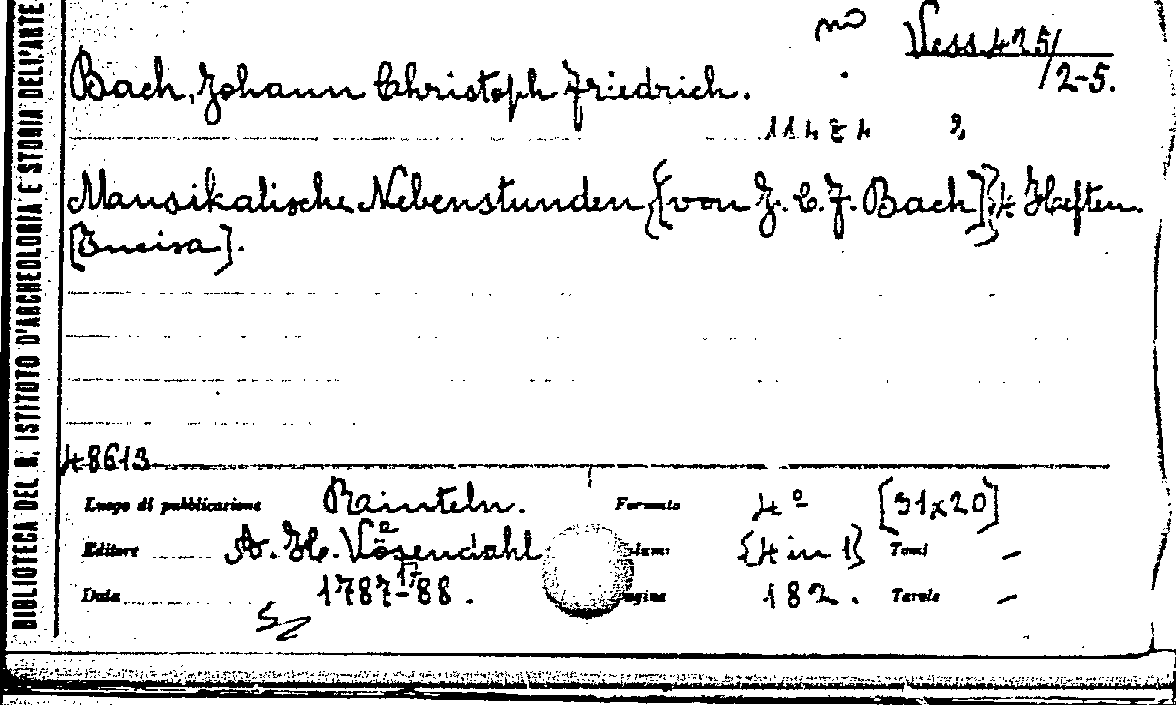 BIBLIOTECA DEL R. ISTITUTO D'ARCHEOLOGIA E STORIA DELL'ARTE
no Vess. 425/
/2-5.
Bach, Johann Christoph Friedrich.
Mausikalische Nebenstunden {[von J. C. F. Bach]} 4 Heften.
[Incisa].
48613
Luogo di pubblicazione Rainteln. Formato 4º [31x20]
Editore A. H. Vösendahl {4 in 1} Tomi —
Data 1787-1788. 182. Tavole —